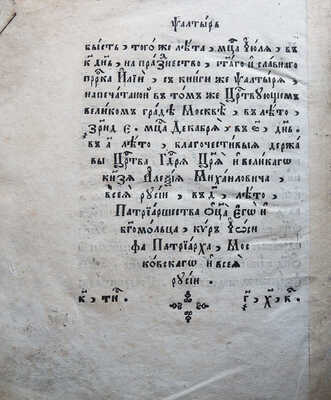 Ѱалтырь
бысть, того же лѣта, мц҃а їюлѧ, въ
к҃ дн҃ь, на праз̾нество, ст҃аго и҆ славнаго
прⷪ҇рка и҆лїи̑, съ книги же ѱалтырѧ,
напечатаной въ томъ же црⷭ҇твующимъ
великомъ градѣ Москвѣ, въ лѣто,
мц҃а Декабрѧ, въ дн҃ь.
въ лѣто, благочестивыѧ держа
вы Црⷭ҇тва гдⷭ҇рѧ Цр҃ѧ и҆ великагѡ
кн҃зѧ Алеѯїа Михаиловича,
всеѧ рꙋсїи, въ д҃, лѣто,
Патрїаршества ѻ҆ц҃а є҆гѡ̀ и҆
бг҃омольца, кѵръ і҆ѡ҆си
фа Патрїарха, Мос
ковскагѡ и҆ всеѧ
рꙋсїи.